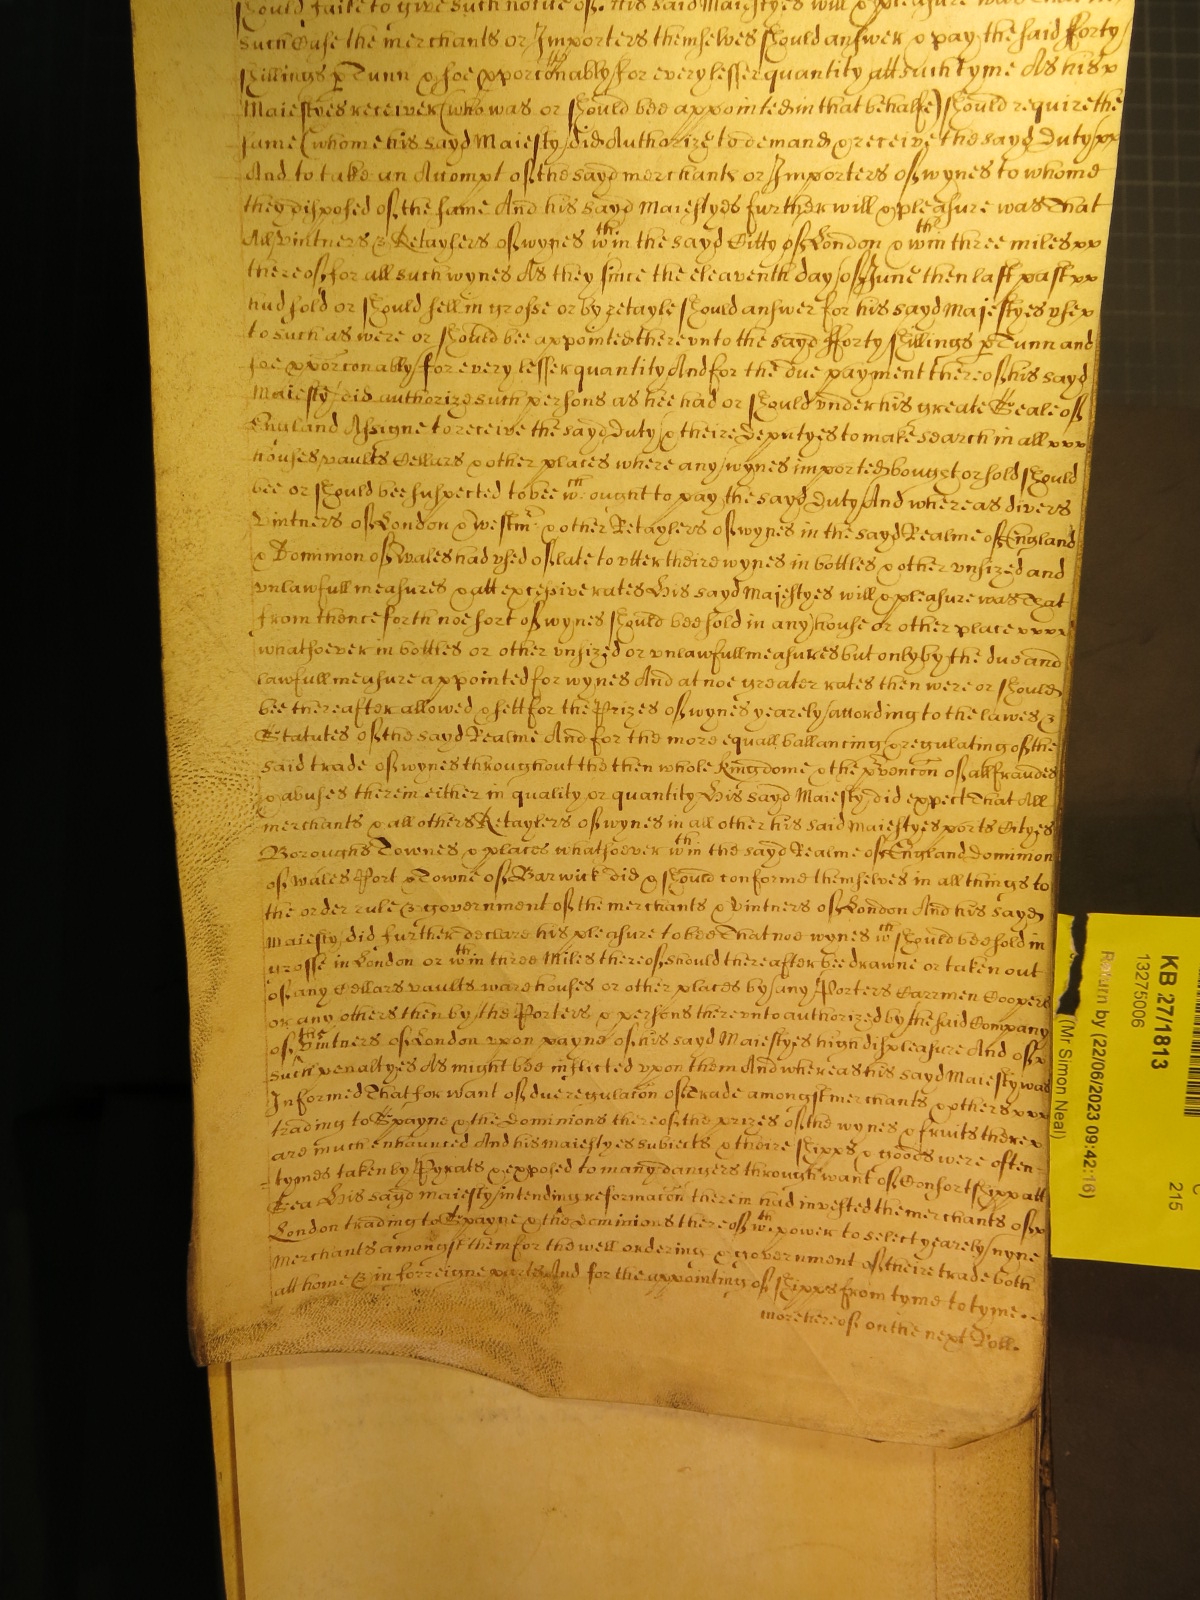 should faile to give such notice of. His said Majestyes will & pleasure was that in
such Case the merchants or Importers themselves should answer & pay the said fforty
shillings p Tunn & soe pporconably for every lesser quantity att such tyme As his
Majestyes receiver (who was or should bee appointed in that behalfe) should require the
same (whome his sayd Majesty did Authorize to demand & receive the sayd Duty
And to take an Accompt of the sayd merchants or Importers of wynes to whome
they disposed of the same And his sayd Majestyes further will & pleasure was That
All Vintners & Retaylers of wynes wthin the sayd Citty of London & wthin three miles
thereof for all such wynes As they since the eleaventh day of June then last past
had sold or should sell in grosse or by retayle should answer for his sayd Majestyes vse
to such as were or should bee appointed therevnto the sayd fforty shillings p Tunn and
soe pporconably for every lesser quantity And for the due payment thereof his sayd
Majesty did authorize such persons as hee had or should vnder his greate Seale of
England Assigne to receive the sayd Duty & theire Deputyes to make search in all
houses vaults Cellars & other places where any wynes imported bought or sold should
bee or should bee suspected to bee wch ought to pay the sayd Duty And whereas divers
Vintners of London & Westmr & other Retaylers of wynes in the sayd Realme of England
& Dominion of Wales had vsed of late to vtter theire wynes in bottles & other vnsized and
vnlawfull measures & att excessive rates His sayd Majestyes will & pleasure was That
from thenceforth noe sort of wynes should bee sold in any house or other place
whatsoever in bottles or other vnsized or vnlawfull measures but only by the due and
lawfull measure appointed for wynes And at noe greater rates then were or should
bee thereafter allowed & sett for the Prizes of wynes yearely according to the lawes &
Statutes of the sayd Realme And for the more equall ballancing & regulating of the
said trade of wynes throughout the then whole Kingdome & the pvencon of all fraudes
& abuses therein either in quality or quantity His sayd Majesty did expect That All
merchants & all others Retaylers of wynes in all other his said Majestyes ports Cityes
Boroughs Townes & places whatsoever wthin the sayd Realme of England Dominion
of Wales Port & Towne of Barwick did & should conforme themselves in all things to
the order rule & government of the merchants & Vintners of London And his sayd
Majesty did further declare his pleasure to bee That noe wynes wch should bee sold in
grosse in London or wthin three Miles thereof should thereafter bee drawne or taken out
of any Cellars vaults warehouses or other places by any Porters Carrmen Coopers
or any others then by the Porters & persons therevnto authorized by the said Company
of the Vintners of London vpon payne of his sayd Majestyes high displeasure And of
such penaltyes As might bee inflicted vpon them And whereas his sayd Majesty was
Informed That for want of due regulacon of Trade amongst merchants & others
trading to Spayne & the Dominions thereof the prizes of the wynes & fruits there
are much enhaunced And his Majestyes subjects & theire shipps & goods were often
tymes taken by Pyrats & exposed to many dangers through want of Consortshipp att
Sea His sayd Majesty intending reformacon therein had invested the merchants of
London trading to Spayne & the Dominions thereof wth power to select yearely nyne
Merchants amongst them for the well ordering & government of theire trade both
att home & in forreigne partes And for the appointing of shipps from tyme to tyme.
more hereof on the next Roll.
KB 27/1813
13275006
Return by (22/06/2023 09:42:16)
(Mr Simon Neal)
215